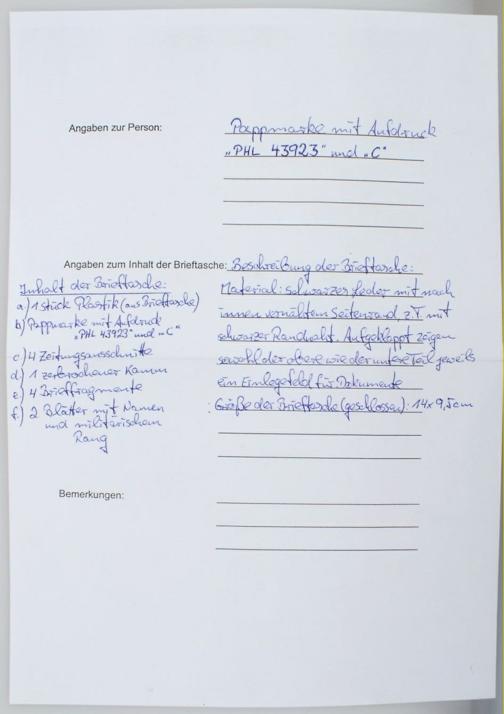 Angaben zur Person:
Pappmarke mit Aufdruck
„PHL 43923" und „C"
Angaben zum Inhalt der Brieftasche:
Beschreibung der Brieftasche:
Material: schwarzes Leder mit nach
innen vernähtem Seitenrand, z.T. mit
schwarzer Randnaht. Aufgeklappt zeigen
sowohl der obere wie der untere Teil jeweils
ein Einlegefeld für Dokumente
Größe der Brieftasche (geschlossen): 14x9,5cm
Inhalt der Brieftasche:
a) 1 Stück Plastik (aus Brieftasche)
b) Pappmarke mit Aufdruck
„PHL 43923" und „C"
c) 4 Zeitungsausschnitte
d) 1 zerbrochener Kamm
e) 4 Brieffragmente
f) 2 Blätter mit Namen
und militärischem
Rang
Bemerkungen: